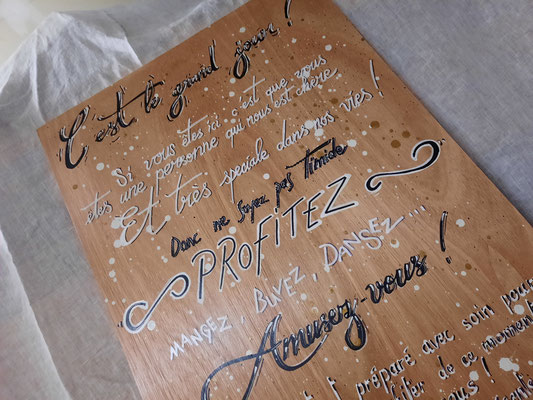 C'est le grand jour !
Si vous êtes ici c'est que vous
êtes une personne qui nous est chère
Et très spéciale dans nos vies !
Donc ne soyez pas timide
PROFITEZ
MANGEZ, BUVEZ, DANSEZ...
Amusez-vous !
préparé avec soin pour
de ce moment